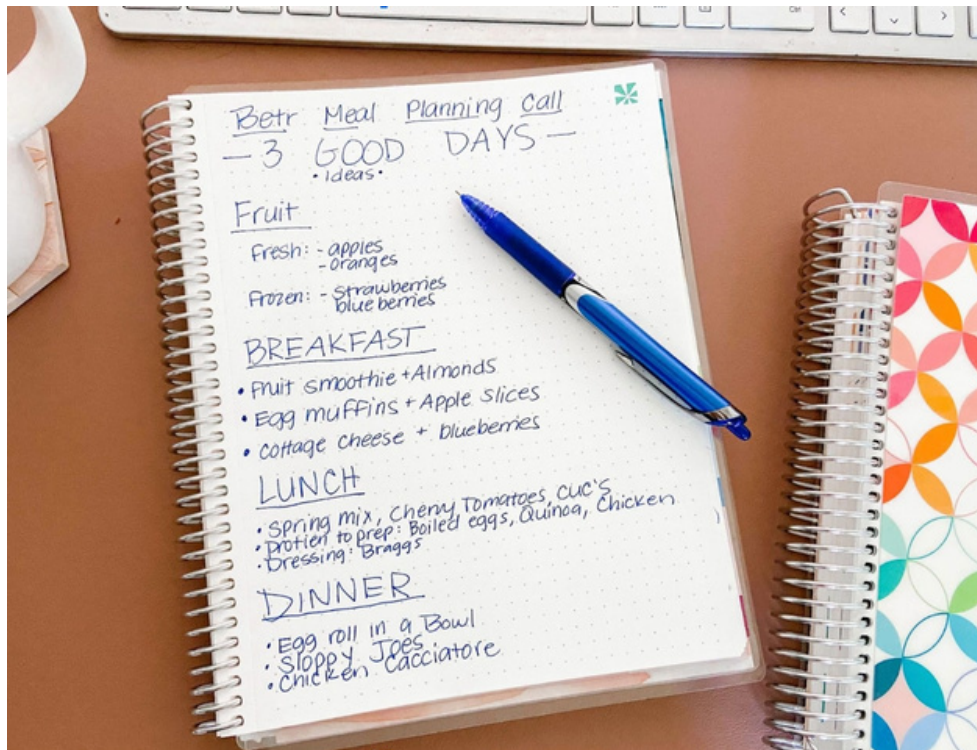 Betr Meal Planning Call
- 3 GOOD DAYS -
• Ideas •
Fruit
Fresh: - apples
- oranges
Frozen: - Strawberries
blueberries
BREAKFAST
• Fruit smoothie + Almonds
• Egg muffins + Apple slices
• Cottage cheese + blueberries
LUNCH
• Spring mix, Cherry Tomatoes, CUC's
• Protien to prep: Boiled eggs, Quinoa, Chicken
• Dressing: Braggs
DINNER
• Egg roll in a Bowl
• Sloppy Joes
• Chicken Cacciatore